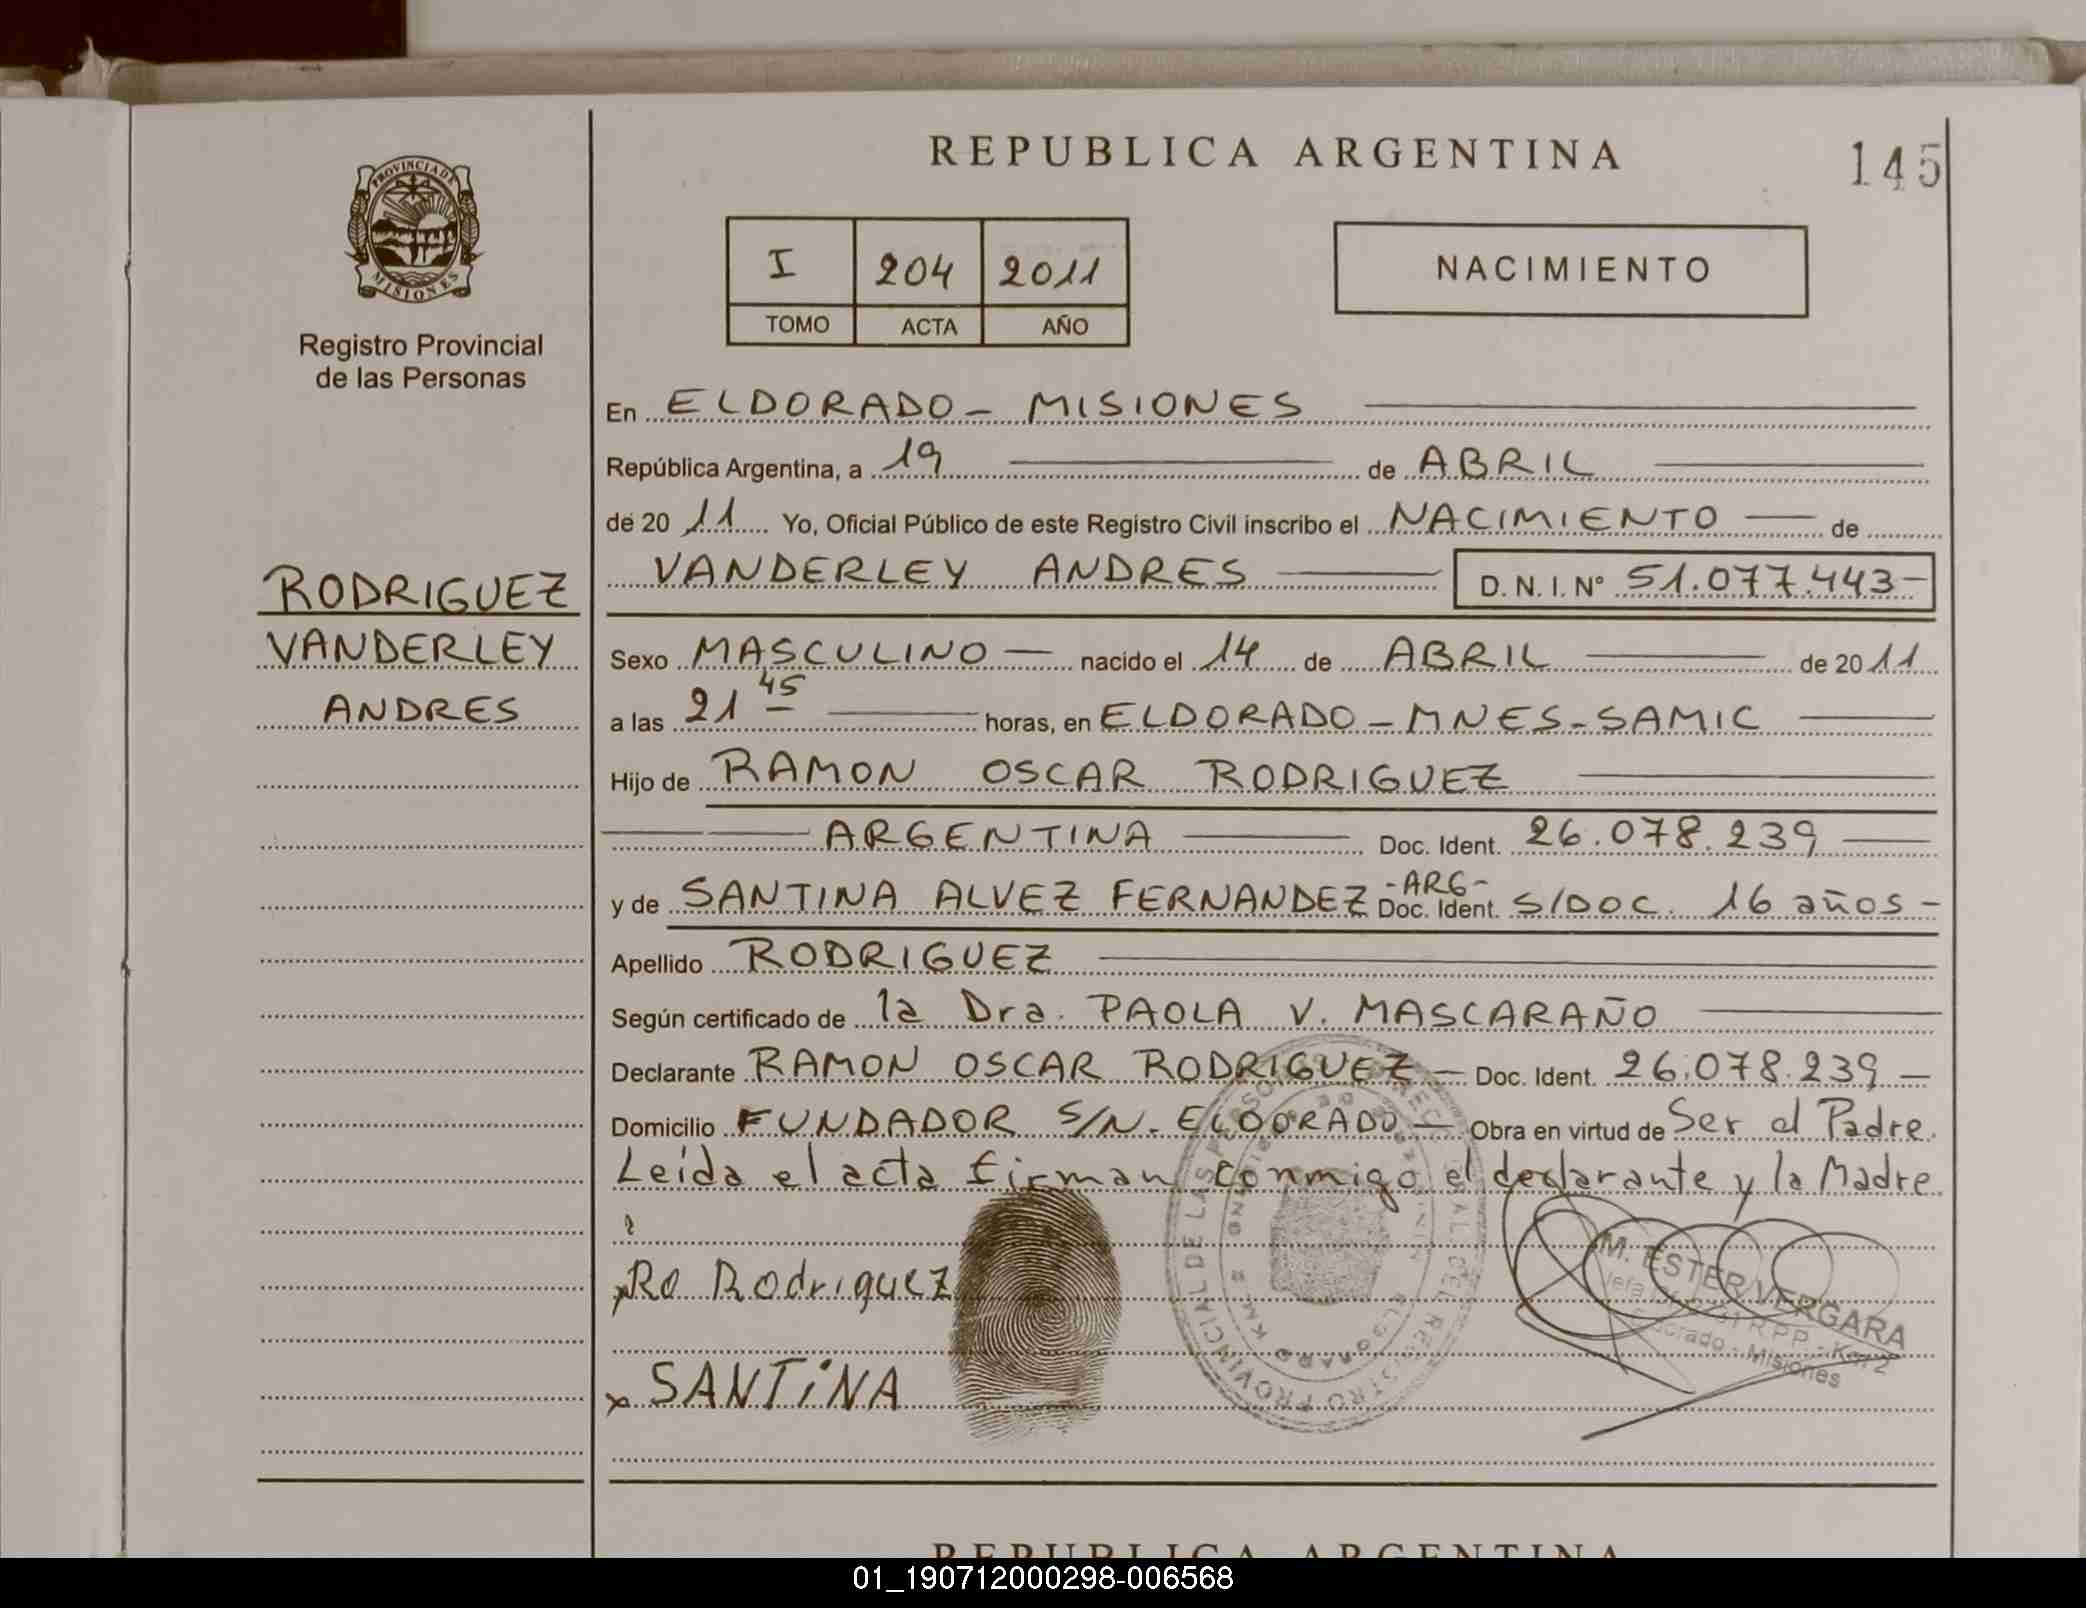 REPUBLICA ARGENTINA
145
PROVINCIA DE
MISIONES
Registro Provincial
de las Personas
I 204 2011
TOMO ACTA AÑO
NACIMIENTO
En ELDORADO - MISIONES
República Argentina, a 19 de ABRIL
de 20 11 Yo, Oficial Público de este Registro Civil inscribo el NACIMIENTO de
VANDERLEY ANDRES D. N. I. N° 51.077.443-
RODRIGUEZ
VANDERLEY
ANDRES
Sexo MASCULINO nacido el 14 de ABRIL de 20 11
a las 21 45 horas, en ELDORADO - MNES - SAMIC
Hijo de RAMON OSCAR RODRIGUEZ
ARGENTINA Doc. Ident. 26.078.239
y de SANTINA ALVEZ FERNANDEZ -ARG- Doc. Ident. S/DOC. 16 años -
Apellido RODRIGUEZ
Según certificado de la Dra. PAOLA V. MASCARAÑO
Declarante RAMON OSCAR RODRIGUEZ - Doc. Ident. 26.078.239 -
Domicilio FUNDADOR S/N. ELDORADO - Obra en virtud de Ser el Padre.
Leída el acta firman conmigo el declarante y la Madre
x Ro Rodriguez
x SANTiNA
M. ESTER VERGARA
R.P.P. - Km 2
Eldorado - Misiones
REPUBLICA ARGENTINA
01_190712000298-006568